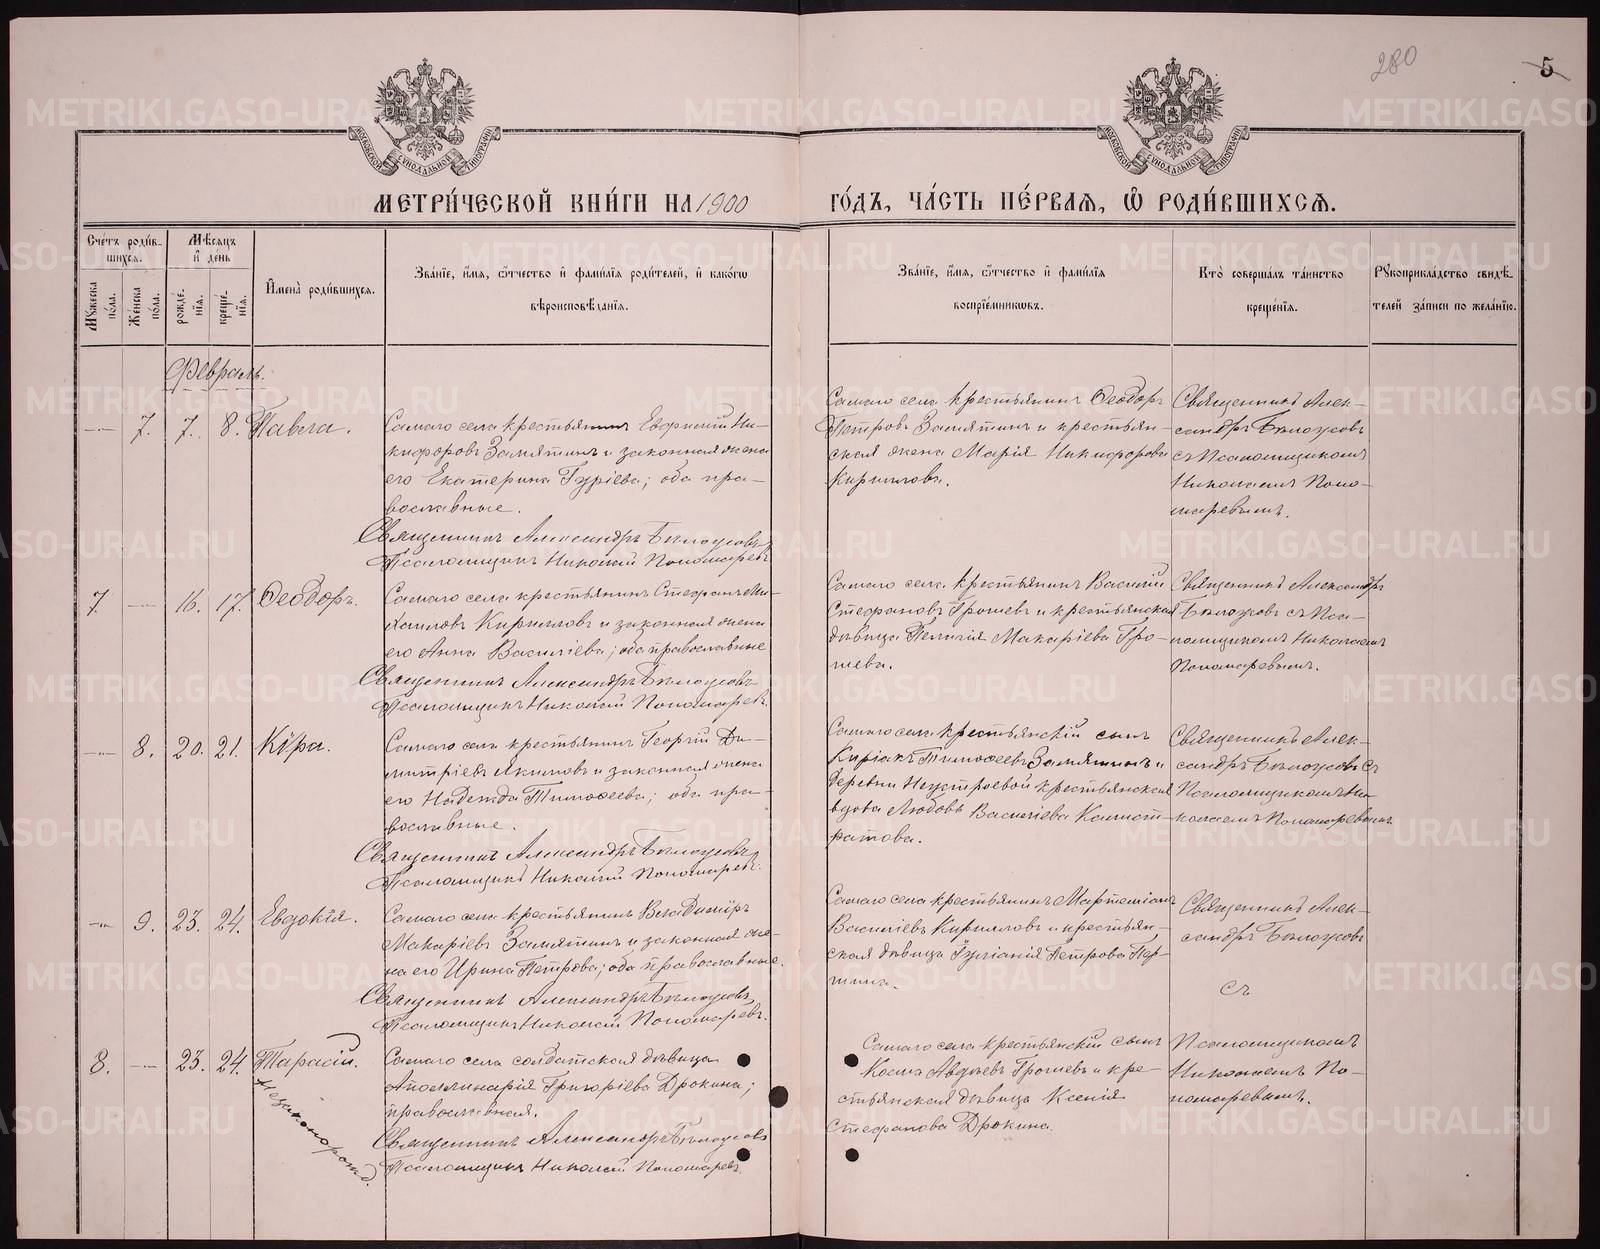 280
5
МОСКОВСКОЙ СѴНОДАЛЬНОЙ ТИПОГРАФІИ
МОСКОВСКОЙ СѴНОДАЛЬНОЙ ТИПОГРАФІИ
МЕТРИ́ЧЕСКОЙ КНИ́ГИ НА 1900 ГО́ДЪ, ЧА́СТЬ ПЕ́РВАЯ, Ѡ РОДИ́ВШИХСЯ.
Сче́тъ роди́вшихся.
Му́жеска по́ла.
Же́нска по́ла.
Мѣ́сяцъ и де́нь
рожде́нїя.
креще́нїя.
И҆мена̀ роди́вшихся.
Зва́нїе, и҆́мя, ѻ҆́тчество и҆ фами́лїя роди́телей, и҆ како́гѡ
вѣроисповѣ́данїя.
Зва́нїе, и҆́мя, ѻ҆́тчество и҆ фами́лїя
воспрїе́мникѡвъ.
Кто̀ соверша́лъ та́инство
креще́нїя.
Рꙋкоприкла́дство свидѣ́телей за́писи по жела́нїю.
Февраль.
7. 7. 8. Павла.
Самаго села крестьянинъ Евфимій Ни-
кифоровъ Замятинъ и законная жена
его Екатерина Гуріева; оба пра-
вославные.
Священникъ Александръ Бѣлоусовъ
Псаломщикъ Николай Пономаревъ
Самаго села крестьянинъ Ѳеодоръ
Петровъ Замятинъ и крестьян-
ская жена Марія Никифорова
Кириллова.
Священникъ Алек-
сандръ Бѣлоусовъ
съ Псаломщикомъ
Николаемъ Поно-
маревымъ.
7. 16. 17. Ѳеодоръ.
Самаго села крестьянинъ Стефанъ Ми-
хаиловъ Кирилловъ и законная жена
его Анна Василіева; оба православные
Священникъ Александръ Бѣлоусовъ
Псаломщикъ Николай Пономаревъ.
Самаго села крестьянинъ Василій
Стефановъ Грошевъ и крестьянская
дѣвица Пелагія Макаріева Гро-
шева.
Священникъ Александръ
Бѣлоусовъ съ Пса-
ломщикомъ Николаемъ
Пономаревымъ.
8. 20. 21. Кѵра.
Самаго села крестьянинъ Георгій Ди-
митріевъ Якимовъ и законная жена
его Надежда Тимоѳеева; оба пра-
вославные.
Священникъ Александръ Бѣлоусовъ
Псаломщикъ Николай Пономаревъ.
Самаго села крестьянскій сынъ
Киріакъ Тимоѳеевъ Замятинъ и
деревни крестьянская
вдова Любовь Василіева Калист-
ратова.
Священникъ Алек-
сандръ Бѣлоусовъ съ
Псаломщикомъ Ни-
колаемъ Пономаревымъ.
9. 23. 24. Евдокія.
Самаго села крестьянинъ Владиміръ
Макаріевъ Замятинъ и законная же-
на его Ирина Петрова; оба православные.
Священникъ Александръ Бѣлоусовъ
Псаломщикъ Николай Пономаревъ.
Самаго села крестьянинъ Мартиніанъ
Василіевъ Кирилловъ и крестьян-
ская дѣвица Іуліанія Петрова Пер-
шина.
Священникъ Алек-
сандръ Бѣлоусовъ
съ
8. 23. 24. Тарасій.
Незаконорожд.
Самаго села солдатская дѣвица
Аполлинарія Григоріева Дрокина;
православная.
Священникъ Александръ Бѣлоусовъ
Псаломщикъ Николай Пономаревъ.
Самаго села крестьянскій сынъ
Косма Авдіевъ Грошевъ и кре-
стьянская дѣвица Ксенія
Стефанова Дрокина.
Псаломщикомъ
Николаемъ По-
номаревымъ.
METRIKI.GASO-URAL.RU